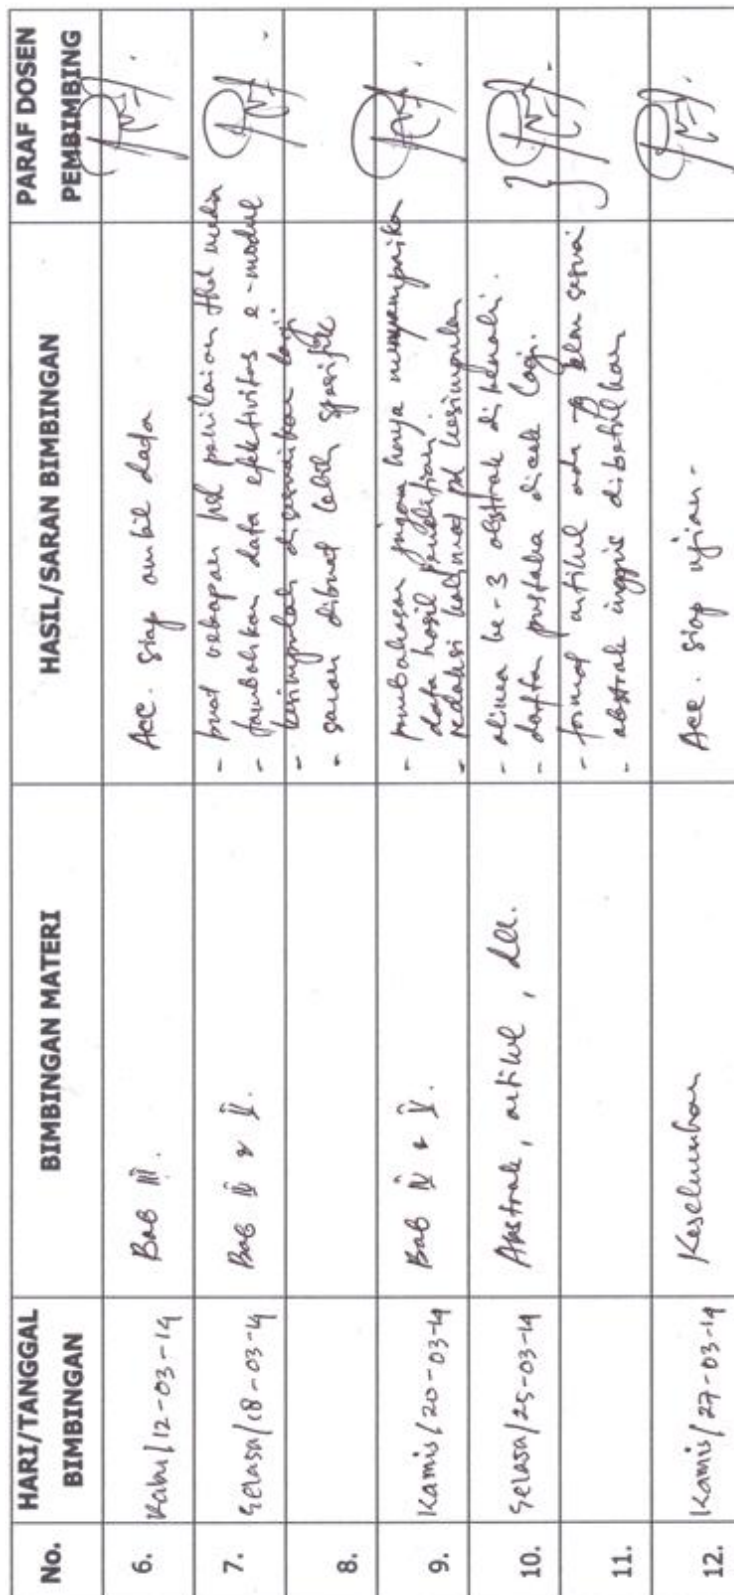 No. HARI/TANGGAL BIMBINGAN BIMBINGAN MATERI HASIL/SARAN BIMBINGAN PARAF DOSEN PEMBIMBING
6. Rabu/12-03-14 Bab III. Acc. siap ambil data
7. Selasa/18-03-14 Bab IV & V. - buat rekapan penilaian media
- tambahkan data efektivitas e-modul
8. - kesimpulan disesuaikan lagi
- saran dibuat lebih spesifik
9. Kamis/20-03-14 Bab IV & V. - pembahasan jangan hanya menyampaikan
data hasil penelitian.
- redaksi kalimat pd kesimpulan
10. Selasa/25-03-14 Abstrak, artikel, dll. - alinea ke-3 abstrak
- daftar pustaka dicek lagi.
11. - format artikel ada yg blm sesuai
- abstrak inggris dibetulkan
12. Kamis/27-03-14 Keseluruhan Acc. siap ujian-